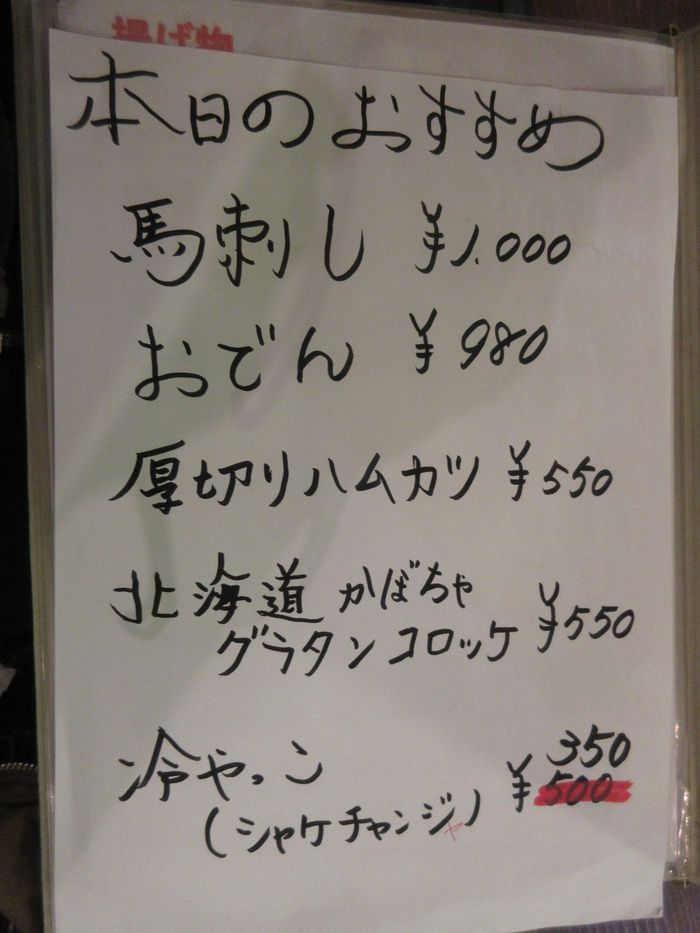 揚げ物
本日のおすすめ
馬刺し ¥1.000
おでん ¥980
厚切りハムカツ ¥550
北海道かぼちゃ
グラタンコロッケ ¥550
冷やっこ ¥350
500
(シャケチャンジャ)